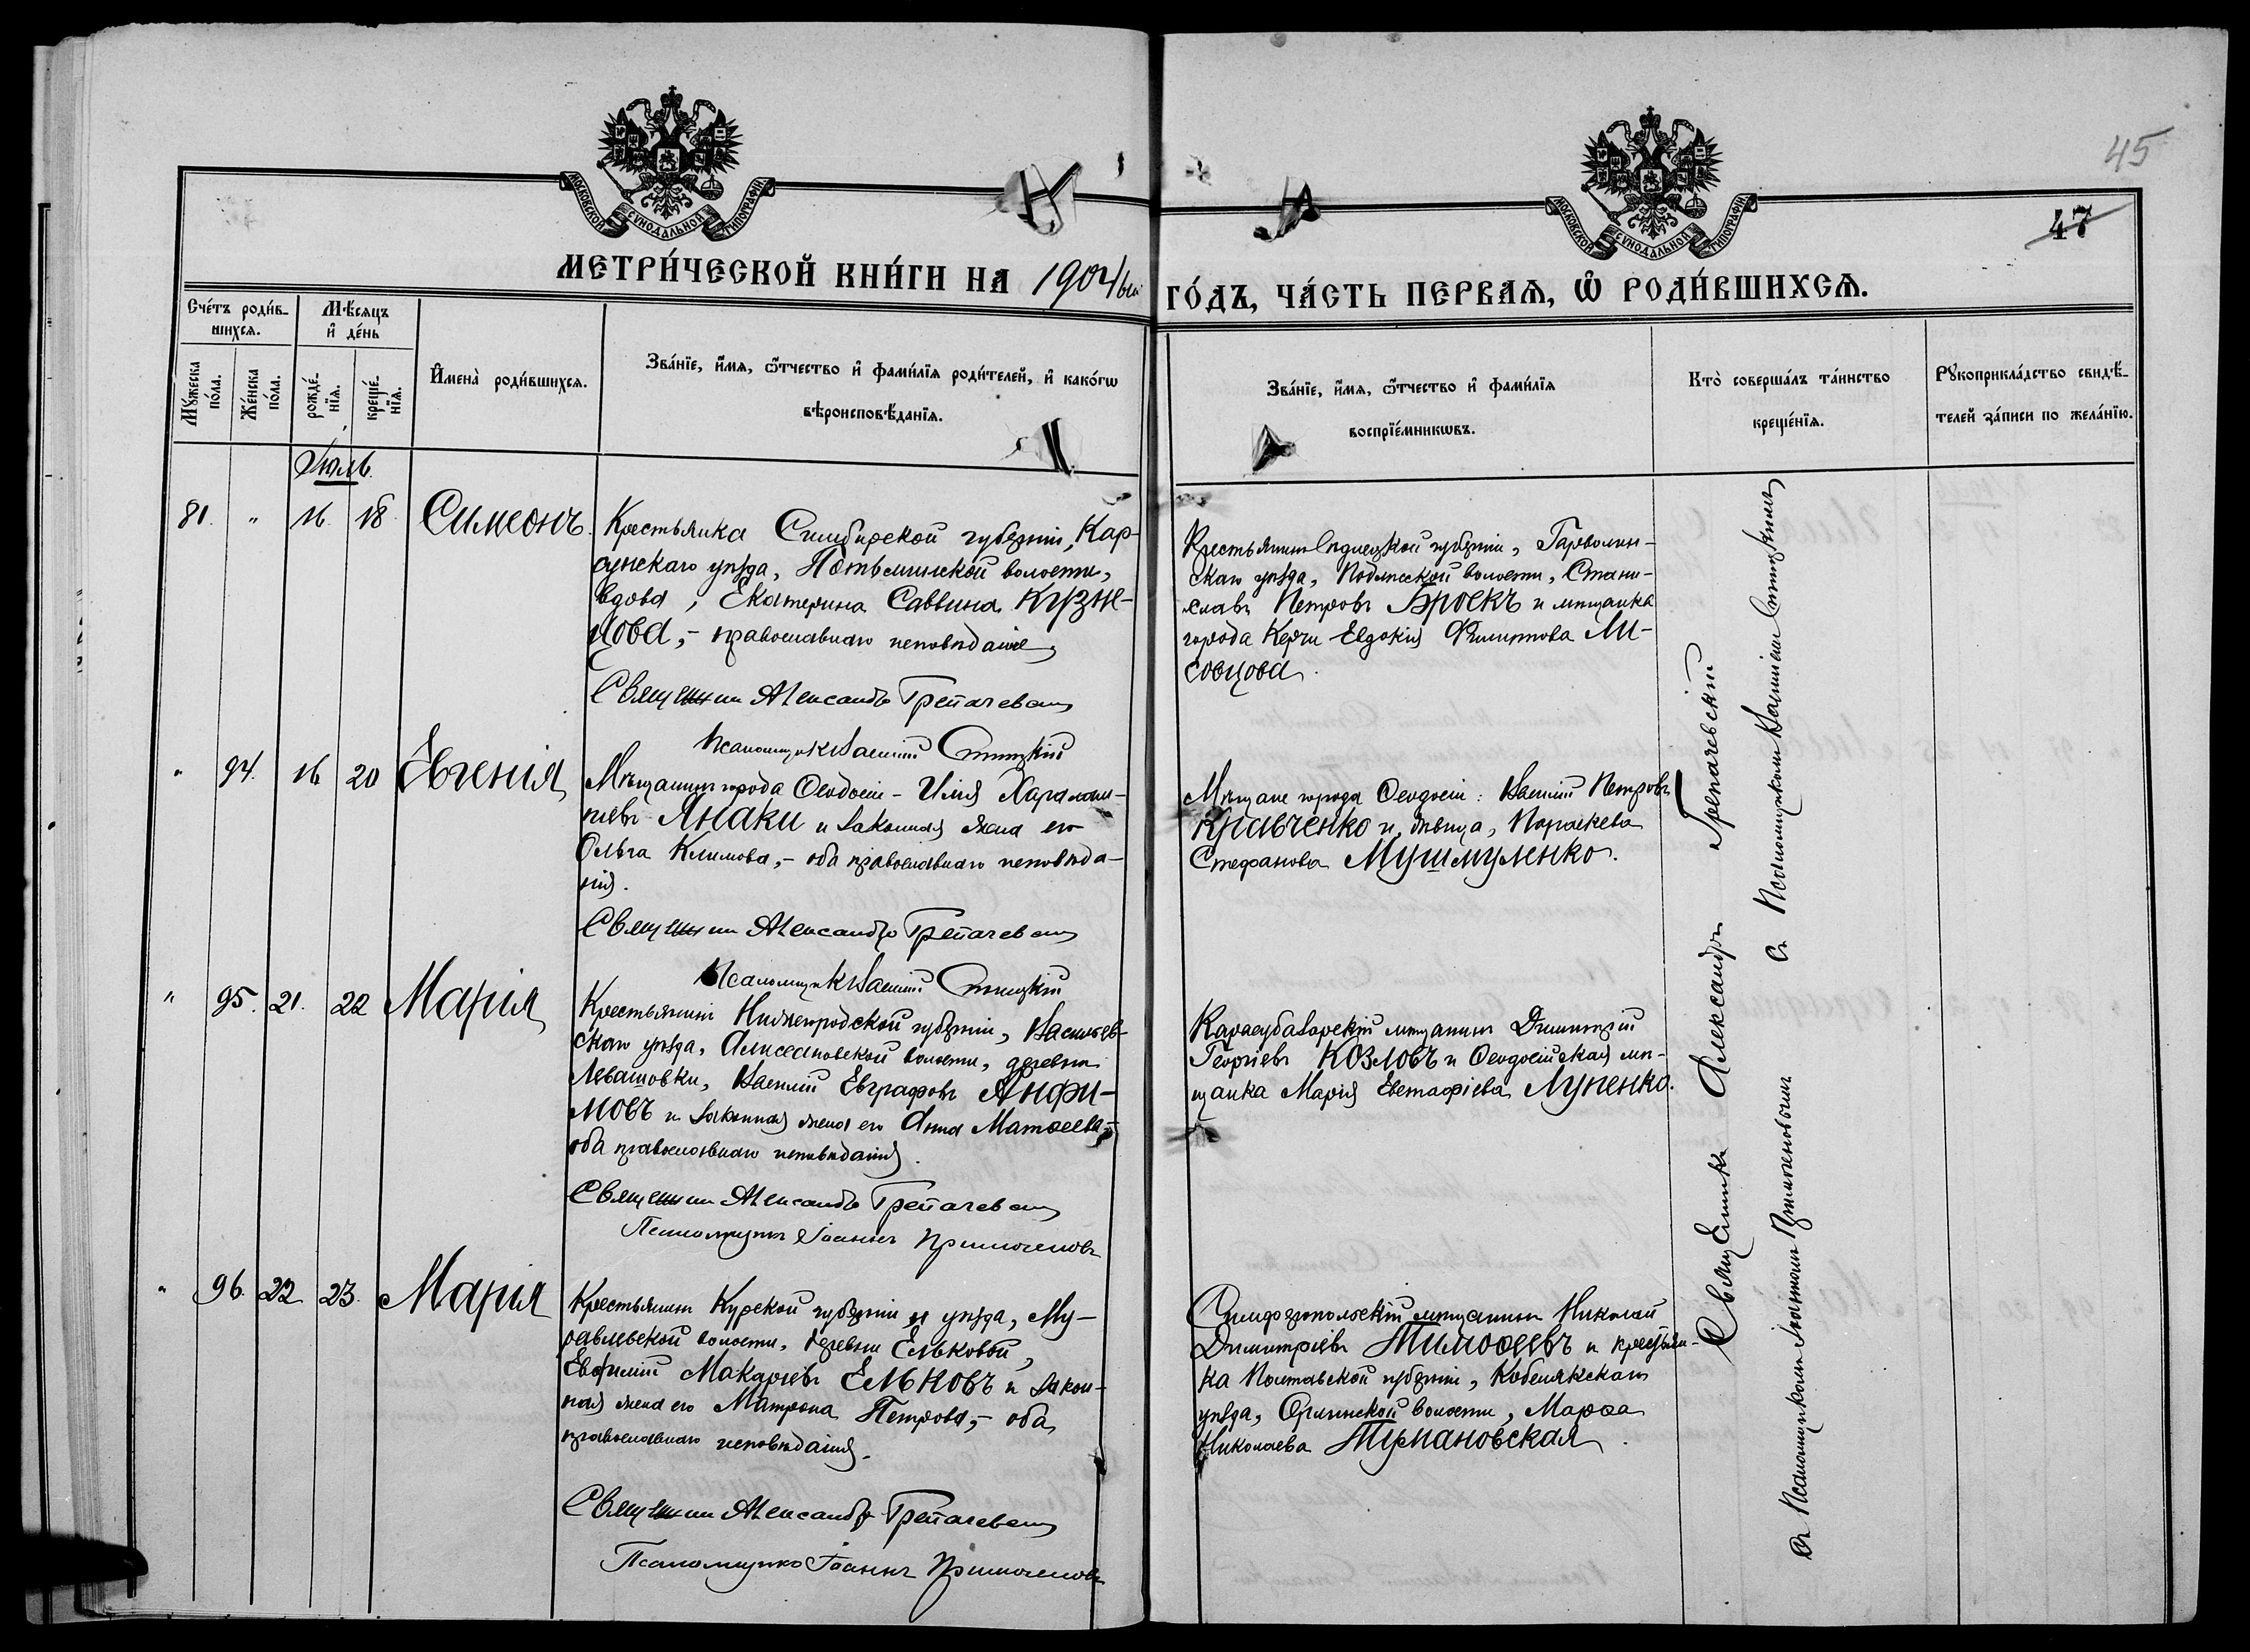 45
47
МОСКОВСКОЙ СѴНОДАЛЬНОЙ ТИПОГРАФІИ
МОСКОВСКОЙ СѴНОДАЛЬНОЙ ТИПОГРАФІИ
МЕТРИ́ЧЕСКОЙ КНИ́ГИ НА 1904ый
ГО́ДЪ, ЧА́СТЬ ПЕРВАѦ, Ѡ҆ РОДИ́ВШИХСѦ.
Сче́тъ роди́в-
шихсѧ.
Мꙋ́жеска по́ла.
Же́нска по́ла.
Мѣ́сѧцъ
и҆ де́нь
рожде́-
нїѧ.
креще́-
нїѧ.
И҆мена̀ роди́вшихсѧ.
Зва́нїе, и҆́мѧ, ѻ҆́тчество и҆ фами́лїѧ роди́телей, и҆ како́гѡ
вѣроисповѣ́данїѧ.
Зва́нїе, и҆́мѧ, ѻ҆́тчество и҆ фами́лїѧ
воспрїе́мникѡвъ.
Кто̀ соверша́лъ та́инство
креще́нїѧ.
Рꙋкоприкла́дство свидѣ́-
телей за́писи по жела́нїю.
Іюль.
81. " 16. 18. Симеонъ.
Крестьянка Симбирской губерніи, Кар-
сунскаго уѣзда, Потьминской волости,
вдова, Екатерина Саввина Кузне-
цова,- православнаго исповѣданія
Священник Александр Трепачевский
Псаломщик Василій
Крестьянинъ Сѣдлецкой губерніи, Гарволин-
скаго уѣзда, волости, Стани-
славъ Петровъ Броекъ и мѣщанка
города Керчи Евдокія Филиппова Ми-
совцова.
" 94. 16 20 Евгенія
Мѣщанинъ города Ѳеодосіи - Илія Харалам-
піевъ Янаки и законная жена его
Ольга Климова,- оба православнаго исповѣда-
нія.
Священник Александр Трепачевский
Псаломщик Василій
Мѣщане города Ѳеодосіи: Василій Петровъ
Кравченко и дѣвица, Параскева
Стефанова Мушмуленко.
" 95. 21. 22 Марія
Крестьянинъ Нижегородской губерніи, Васильев-
скаго уѣзда, волости, деревни
Левашовки, Василій Евграфовъ Анфи-
мовъ и законная жена его Анна Матѳеева,-
оба православнаго исповѣданія.
Священник Александр Трепачевский
Псаломщикъ Іоаннъ
Карасубазарскій мѣщанинъ Димитрій
Георгіевъ Козловъ и Ѳеодосійская мѣ-
щанка Марія Евстафіева Лупенко.
" 96. 22 23. Марія
Крестьянинъ Курской губерніи и уѣзда, Му-
равлевской волости, деревни Ельковой,
Евфимій Макаріевъ Ельковъ и закон-
ная жена его Матрона Петрова,- оба
православнаго исповѣданія.
Священник Александр Трепачевский
Псаломщикъ Іоаннъ
Симферопольскій мѣщанинъ Николай
Димитріевъ Тимоѳеевъ и крестьян-
ка Полтавской губерніи, Кобелякскаго
уѣзда, волости, Марѳа
Николаева Турмановская.
Священникъ Александръ Трепачевскій
Съ Псаломщикомъ Іоанномъ
Съ Псаломщикомъ Василіемъ